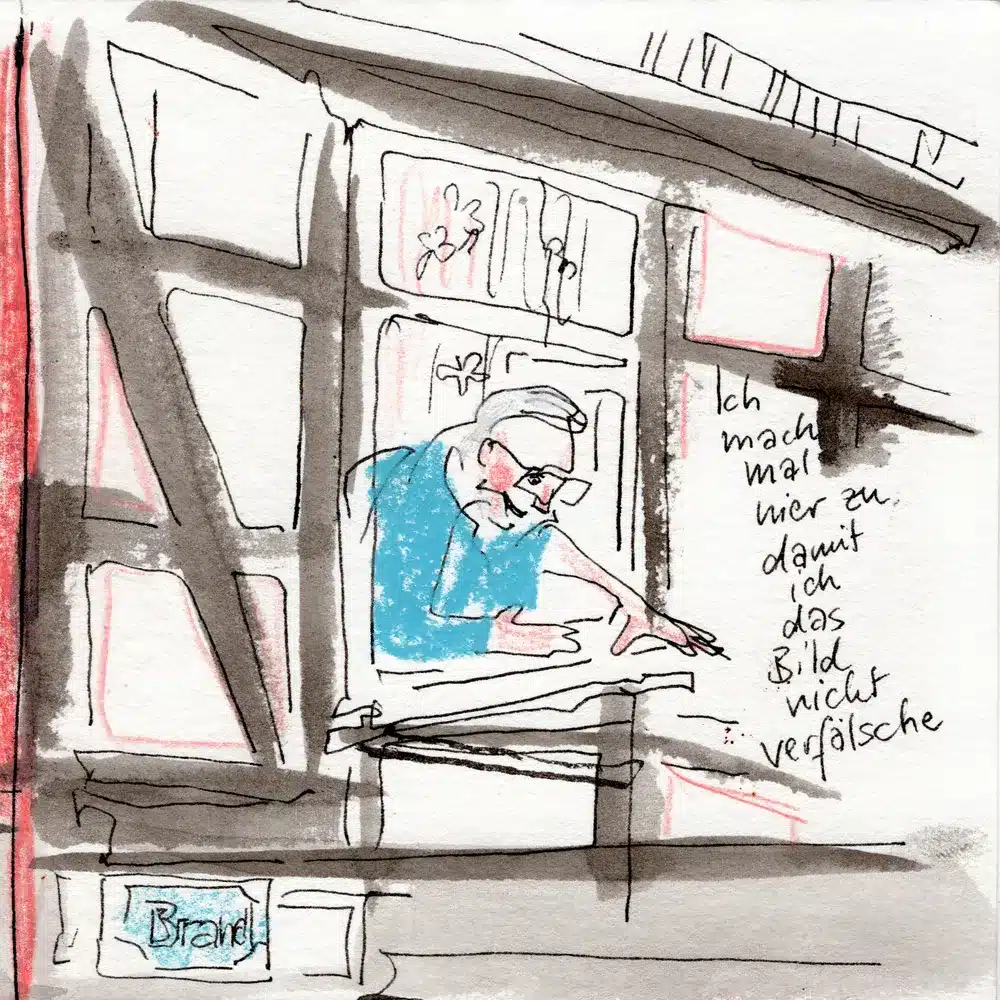 Ich
mach
mal
hier zu
damit
ich
das
Bild
nicht
verfälsche
Brand